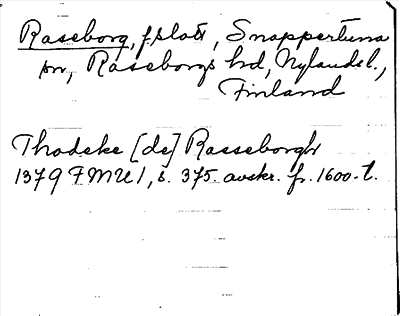 Raseborg, f.slott, Snappertuna
sn, Raseborgs hd, Nylands l.,
Finland
Thodeke [de] Rasseborgh
1379 FMU 1, s. 375 avskr. fr. 1600-t.